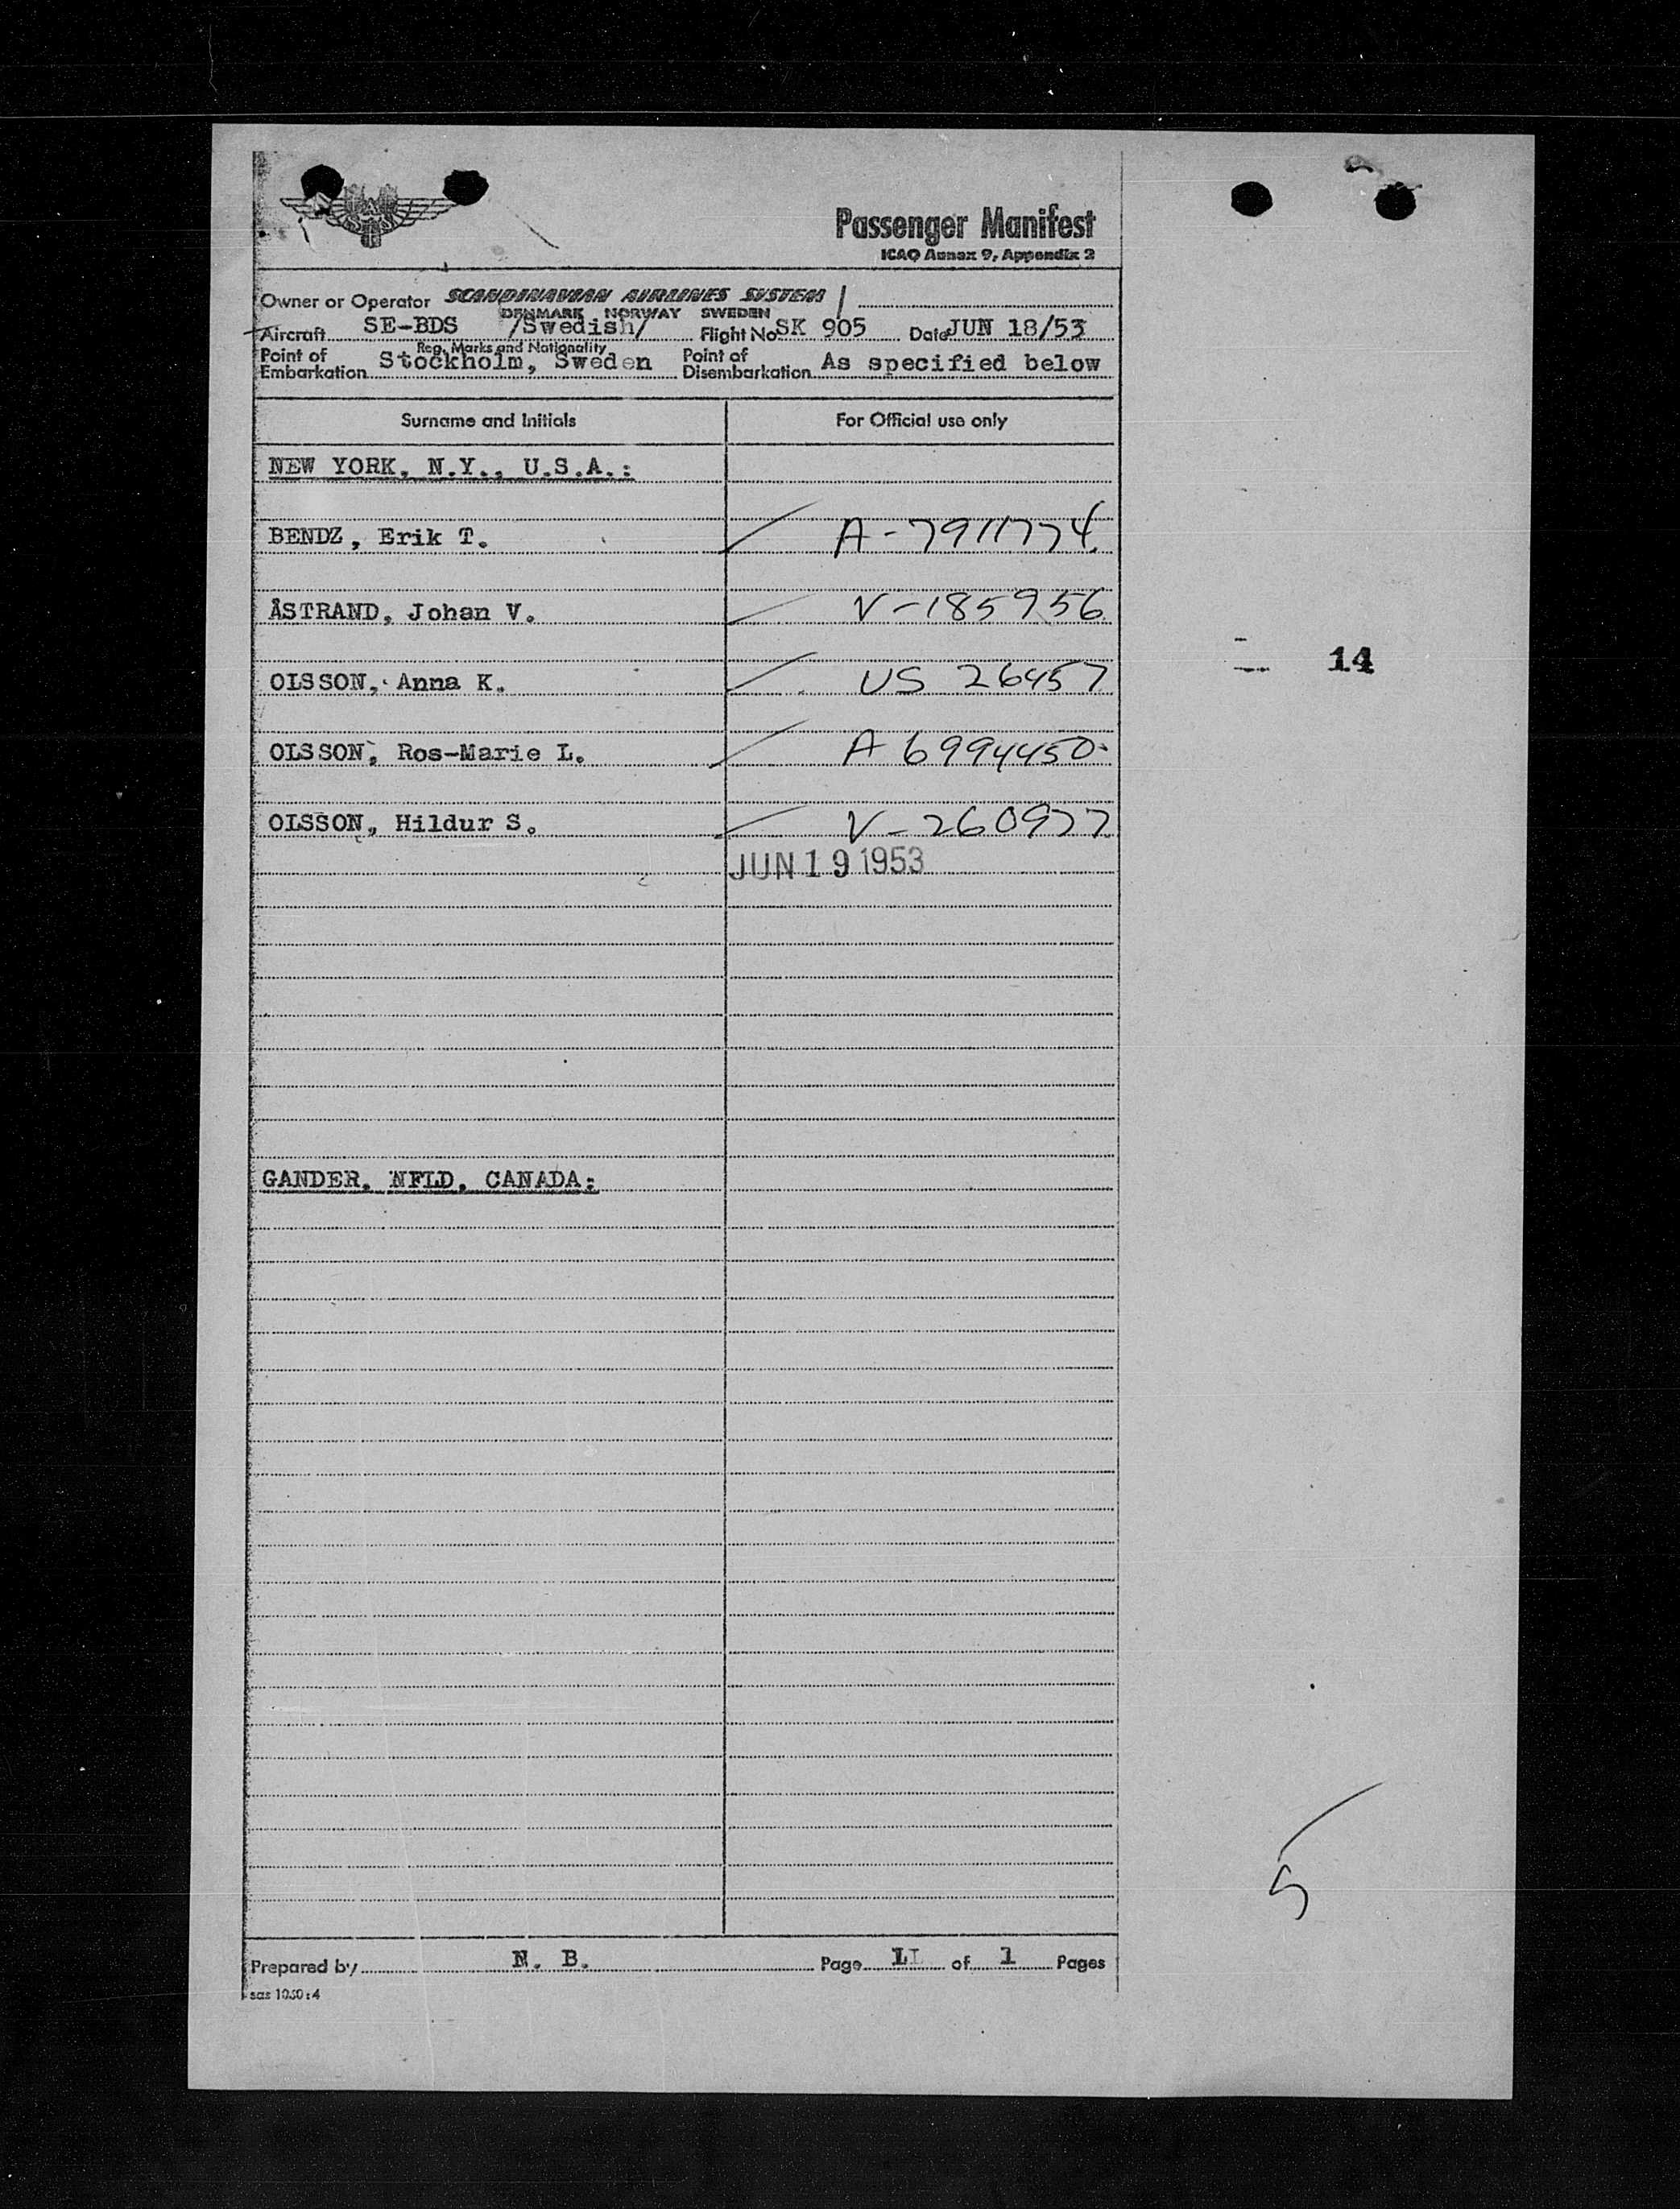 Passenger Manifest
ICAO Annex 9, Appendix 2
Owner or Operator SCANDINAVIAN AIRLINES SYSTEM
DENMARK NORWAY SWEDEN
Aircraft SE-BDS /Swedish/ Flight No SK 905 Date JUN 18/53
Reg. Marks and Nationality
Point of Embarkation Stockholm, Sweden Point of Disembarkation As specified below
Surname and Initials For Official use only
NEW YORK, N.Y., U.S.A.:
BENDZ, Erik T. A-7911774
ÅSTRAND, Johan V. V-185956
OLSSON, Anna K. US 26457
14
OLSSON, Ros-Marie L. A 6994450
OLSSON, Hildur S. V-260977
JUN 19 1953
GANDER, NFLD, CANADA:
5
Prepared by N. B. Page 1 of 1 Pages
sas 1030:4